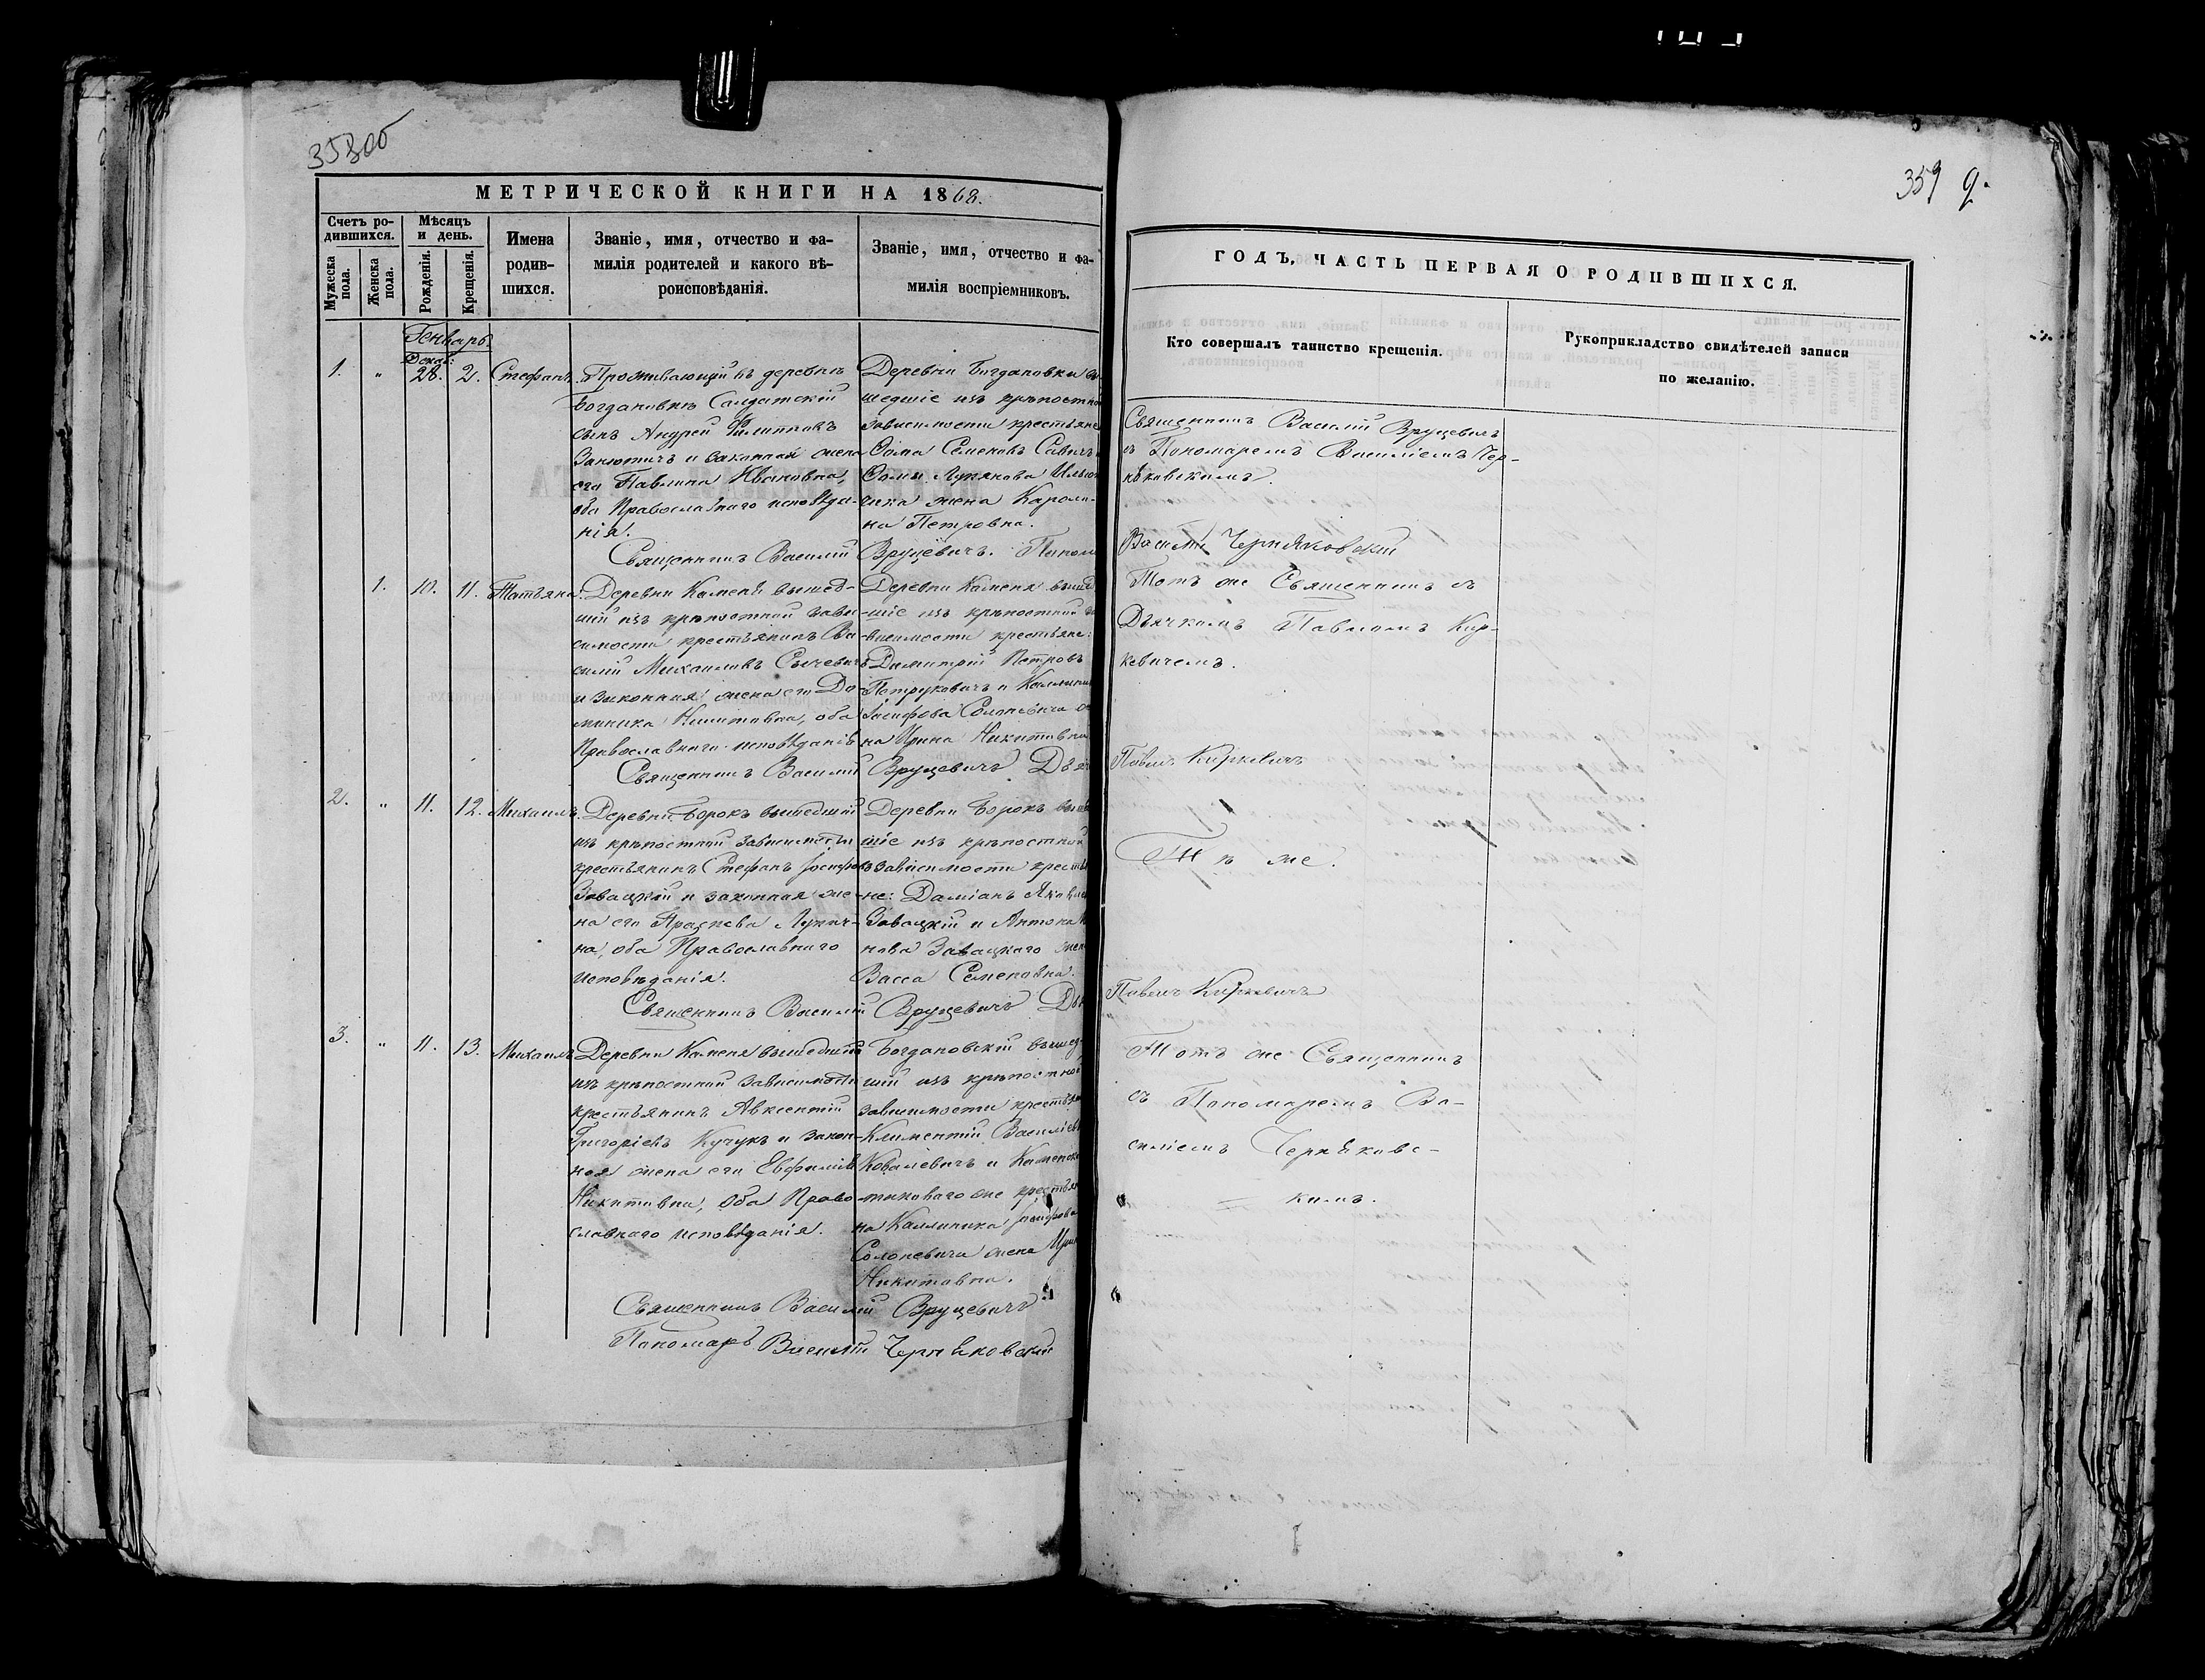 358об
МЕТРИЧЕСКОЙ КНИГИ НА 1868.
Счетъ ро-
дившихся.
Мужеска
пола.
Женска
пола.
Мѣсяцъ
и день.
Рожденія.
Крещенія.
Имена
родив-
шихся.
Званіе, имя, отчество и фа-
милія родителей и какого вѣ-
роисповѣданія.
Званіе, имя, отчество и фа-
милія воспріемниковъ.
Генварь.
Декаб:
1. " 28. 2. Стефанъ.
Проживающій въ деревнѣ
Богдановкѣ Салдатскій
сынъ Андрей Филипповъ
и законная жена
его Павлина Ивановна,
оба Православнаго исповѣда-
нія.
Деревни Богдановки вы-
шедшіе изъ крѣпостной
зависимости крестьяне
Ѳома Семеновъ Савичъ
Ѳомы
жена Кароли-
на Петровна.
Священникъ Василій Вруцевичъ. Поном
1. 10. 11. Татьяна.
Деревни Каменя вышед-
шій изъ крѣпостной зави-
симости крестьянинъ Ва-
силій Михаиловъ Сычевичъ
и законная жена его До-
миника Никитовна, оба
Православнаго исповѣданія
Деревни Каменя вышед
-шіе изъ крѣпостной за
-висимости крестьяне:
Димитрій Петровъ
Петруковичъ и Каллиника
Іосифова Солоневича же
на Ирина Никитовна
Священникъ Василій Вруцевичъ Дья
2. " 11. 12. Михаилъ.
Деревни Борокъ вышедшій
изъ крѣпостной зависимости
крестьянинъ Стефанъ Іосифовъ
Завацкій и законная же-
на его Праскева Лукич-
на, оба Православнаго
исповѣданія.
Деревни Борокъ вышед
шіе изъ крѣпостной
зависимости крестья
не: Даміанъ Яковлевъ
Завацкій и Антона
нова Завацкаго жена
Васса Семеновна.
Священникъ Василій Вруцевичъ Дья
3. " 11. 13. Михаилъ
Деревни Каменя вышедшій
изъ крѣпостной зависимости
крестьянинъ Авксентій
Григоріевъ Кучукъ и закон-
ная жена его Евфимія
Никитовна, оба Право-
славнаго исповѣданія.
Богдановскій вышед-
шій изъ крѣпостной
зависимости крестьян
Климентій Василіевъ
Ковалевичъ и Каменск
таковаго же крестья
на Каллиника Іосифова
Солоневича жена Ирина
Никитовна.
Священникъ Василій Вруцевичъ
Пономарь Василій Черняковскій
359 9.
ГОДЪ, ЧАСТЬ ПЕРВАЯ О РОДИВШИХСЯ.
Кто совершалъ таинство крещенія.
Рукоприкладство свидѣтелей записи
по желанію.
Священникъ Василій Вруцевичъ
съ Пономаремъ Василіемъ Чер-
няковскимъ.
Василій Черняковскій
Тотъ же Священникъ съ
Дьячкомъ Павломъ Кир-
кевичемъ.
Павелъ Киркевичъ
Тѣ же.
Павелъ Киркевичъ
Тотъ же Священникъ
съ Пономаремъ Ва-
силіемъ Черняковс-
кимъ.